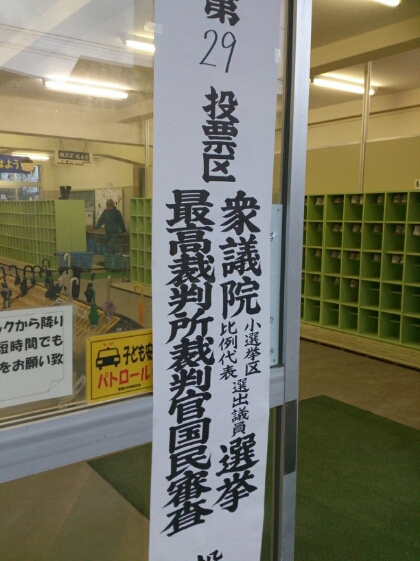 第
29
投票区
衆議院小選挙区比例代表選出議員選挙
最高裁判所裁判官国民審査
投
おはよう
ックから降り
短時間でも
をお願い致
子ども安
パトロール